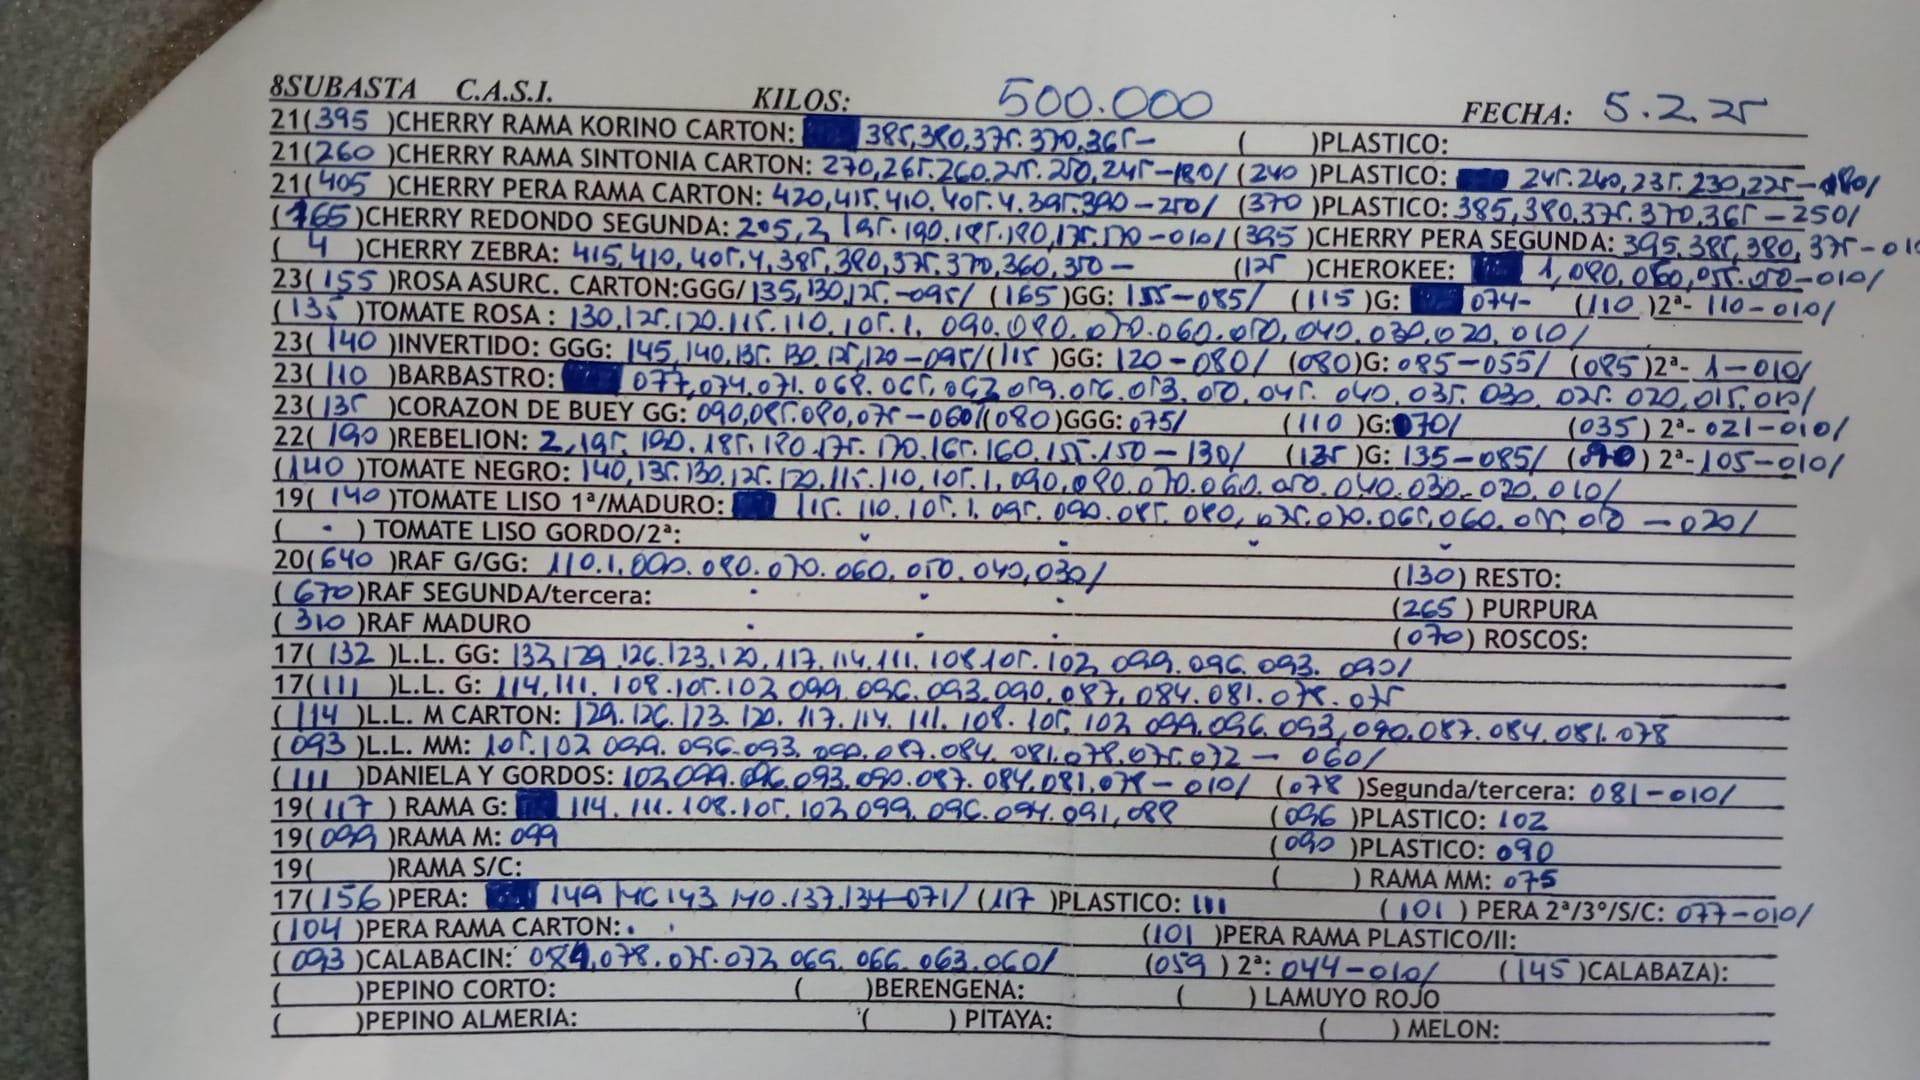 8SUBASTA C.A.S.I. KILOS: 500.000 FECHA: 5.2.25
21(395 )CHERRY RAMA KORINO CARTON: 385,380,375.370,365- ( )PLASTICO:
21(260 )CHERRY RAMA SINTONIA CARTON: 270,265.260.255.250,245-180/ (240 )PLASTICO: 245.240,235.230,225-180/
21(405 )CHERRY PERA RAMA CARTON: 420,415.410.405.4.395.390-250/ (370 )PLASTICO: 385,380.375.370,365-250/
(165)CHERRY REDONDO SEGUNDA: 205,2,195.190.185.180,175.170-010/ (395 )CHERRY PERA SEGUNDA: 395.385,380,375-010
( 4 )CHERRY ZEBRA: 415,410,405.4,385,380,375.370,360,350- (125 )CHEROKEE: 1,080,060,055.050-010/
23(155 )ROSA ASURC. CARTON:GGG/ 135,130,125.-095/ (165 )GG: 155-085/ (115 )G: 074- (110 )2ª- 110-010/
(135 )TOMATE ROSA : 130,125.120.115.110,105.1,090.080.070.060.050,040.030,020,010/
23( 140 )INVERTIDO: GGG: 145,140,135.130.125,120-095/(115 )GG: 120-080/ (080)G: 085-055/ (085)2ª- 1-010/
23( 110 )BARBASTRO: 077,074,071.068.065,062,059.056.053,050,045.040,035.030.025.020,015.010/
23(135 )CORAZON DE BUEY GG: 090,085.080,075-060/(080)GGG: 075/ (110 )G: 070/ (035) 2ª- 021-010/
22( 190 )REBELION: 2,195.190.185.180.175.170.165.160.155.150-130/ (135 )G: 135-085/ ( ) 2ª- 105-010/
(140 )TOMATE NEGRO: 140,135.130,125.120,115.110,105.1,090,080.070.060.050.040.030.020,010/
19( 140 )TOMATE LISO 1ª/MADURO: 115.110.105.1.095.090.085.080,075.070.065,060.055.050-020/
( . ) TOMATE LISO GORDO/2ª:
20(640 )RAF G/GG: 110.1.090.080.070.060.050.040,030/ (130) RESTO:
( 670)RAF SEGUNDA/tercera: (265 ) PURPURA
( 310 )RAF MADURO (070) ROSCOS:
17( 132 )L.L. GG: 132,129.126.123.120,117.114.111.108.105.102,099.096.093.090/
17(111 )L.L. G: 114,111.108.105.102,099,096.093.090,087,084.081.078.075
( 114 )L.L. M CARTON: 129.126.123.120.117.114.111.108.105,102,099.096.093,090.087.084.081.078
(093)L.L. MM: 105.102,099.096.093.090.087.084.081.078.075.072-060/
(111 )DANIELA Y GORDOS: 102,099.096.093.090.087.084.081,078-010/ (078 )Segunda/tercera: 081-010/
19(117 ) RAMA G: 114.111.108.105.102,099.096.094.091,088 (096 )PLASTICO: 102
19(099)RAMA M: 099 (090 )PLASTICO: 090
19( )RAMA S/C: ( ) RAMA MM: 075
17(156)PERA: 149,146,143,140.137.134-071/ (117 )PLASTICO: 111 (101 ) PERA 2ª/3º/S/C: 077-010/
(104 )PERA RAMA CARTON: . (101 )PERA RAMA PLASTICO/II:
(093 )CALABACIN: 084,078.075.072,069.066.063.060/ (059 ) 2ª: 044-010/ (145 )CALABAZA):
( )PEPINO CORTO: ( )BERENGENA: ( ) LAMUYO ROJO
( )PEPINO ALMERIA: ( ) PITAYA: ( ) MELON: